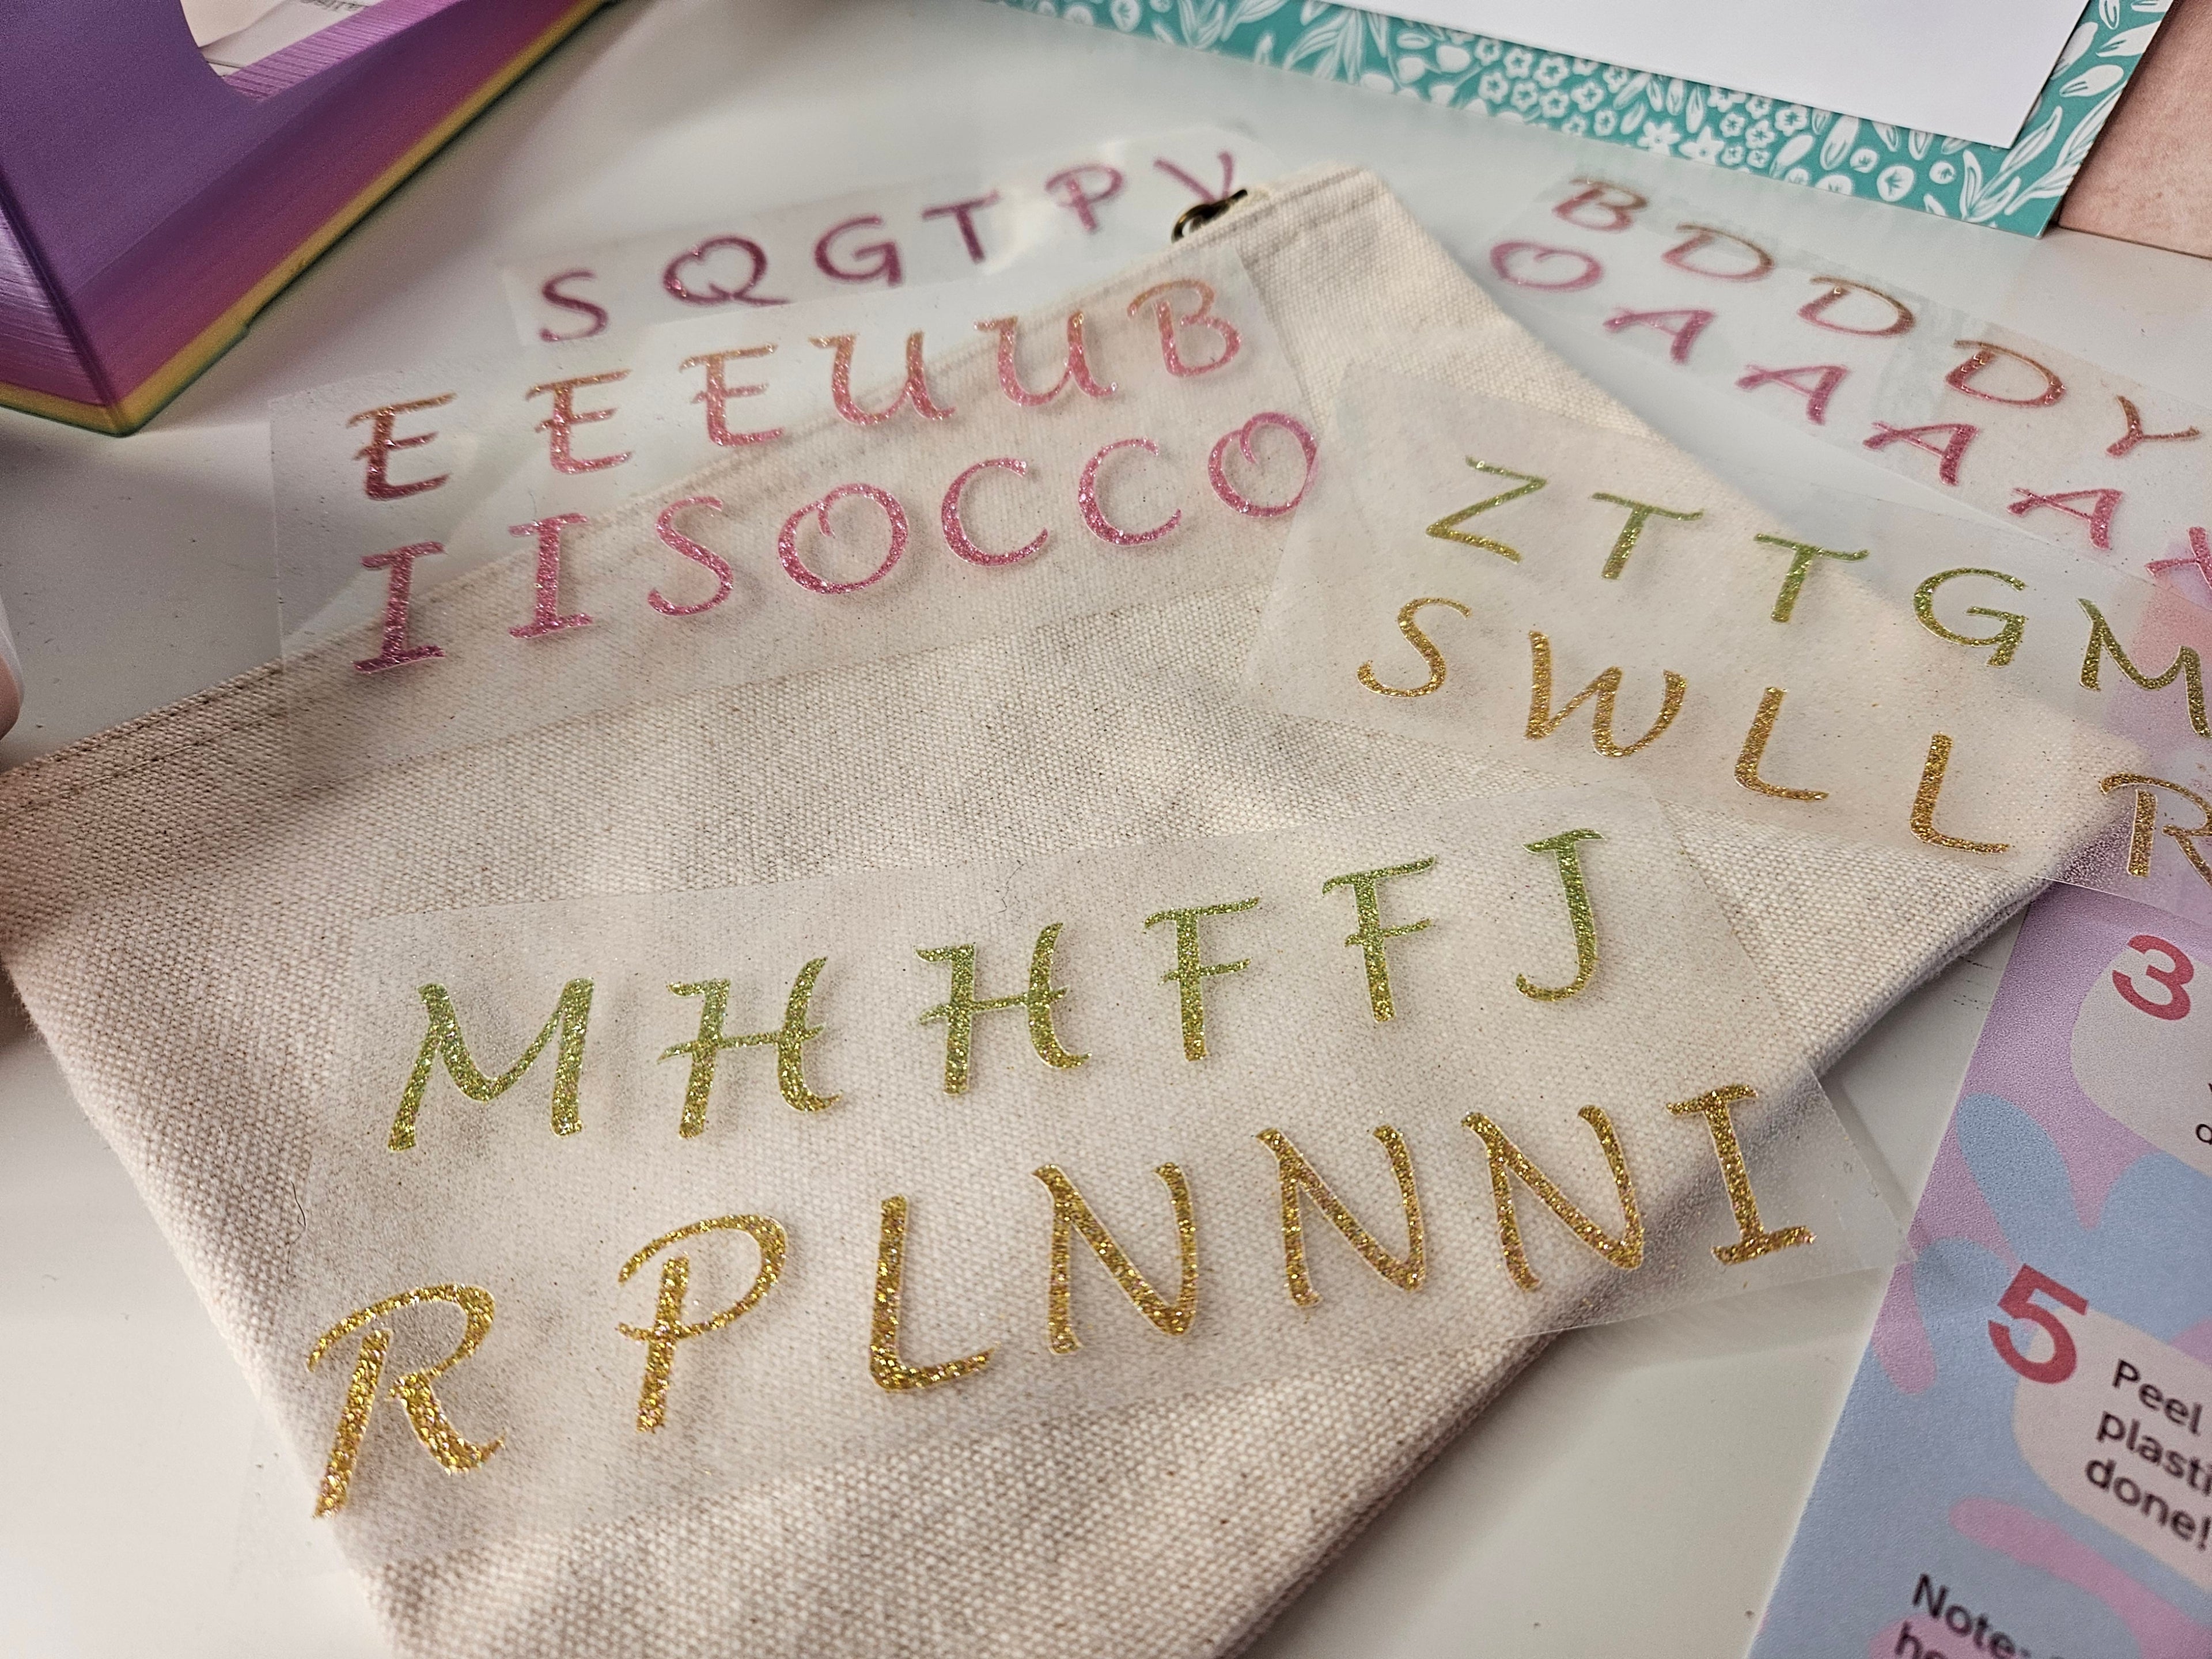 S Q G T P Y
E E E U U B
I I S O C C O
B D D D Y
O A A A A
Z T T G M
S W L L R
M H H F F J
R P L N N N I
3
5
Peel
done!
Note: